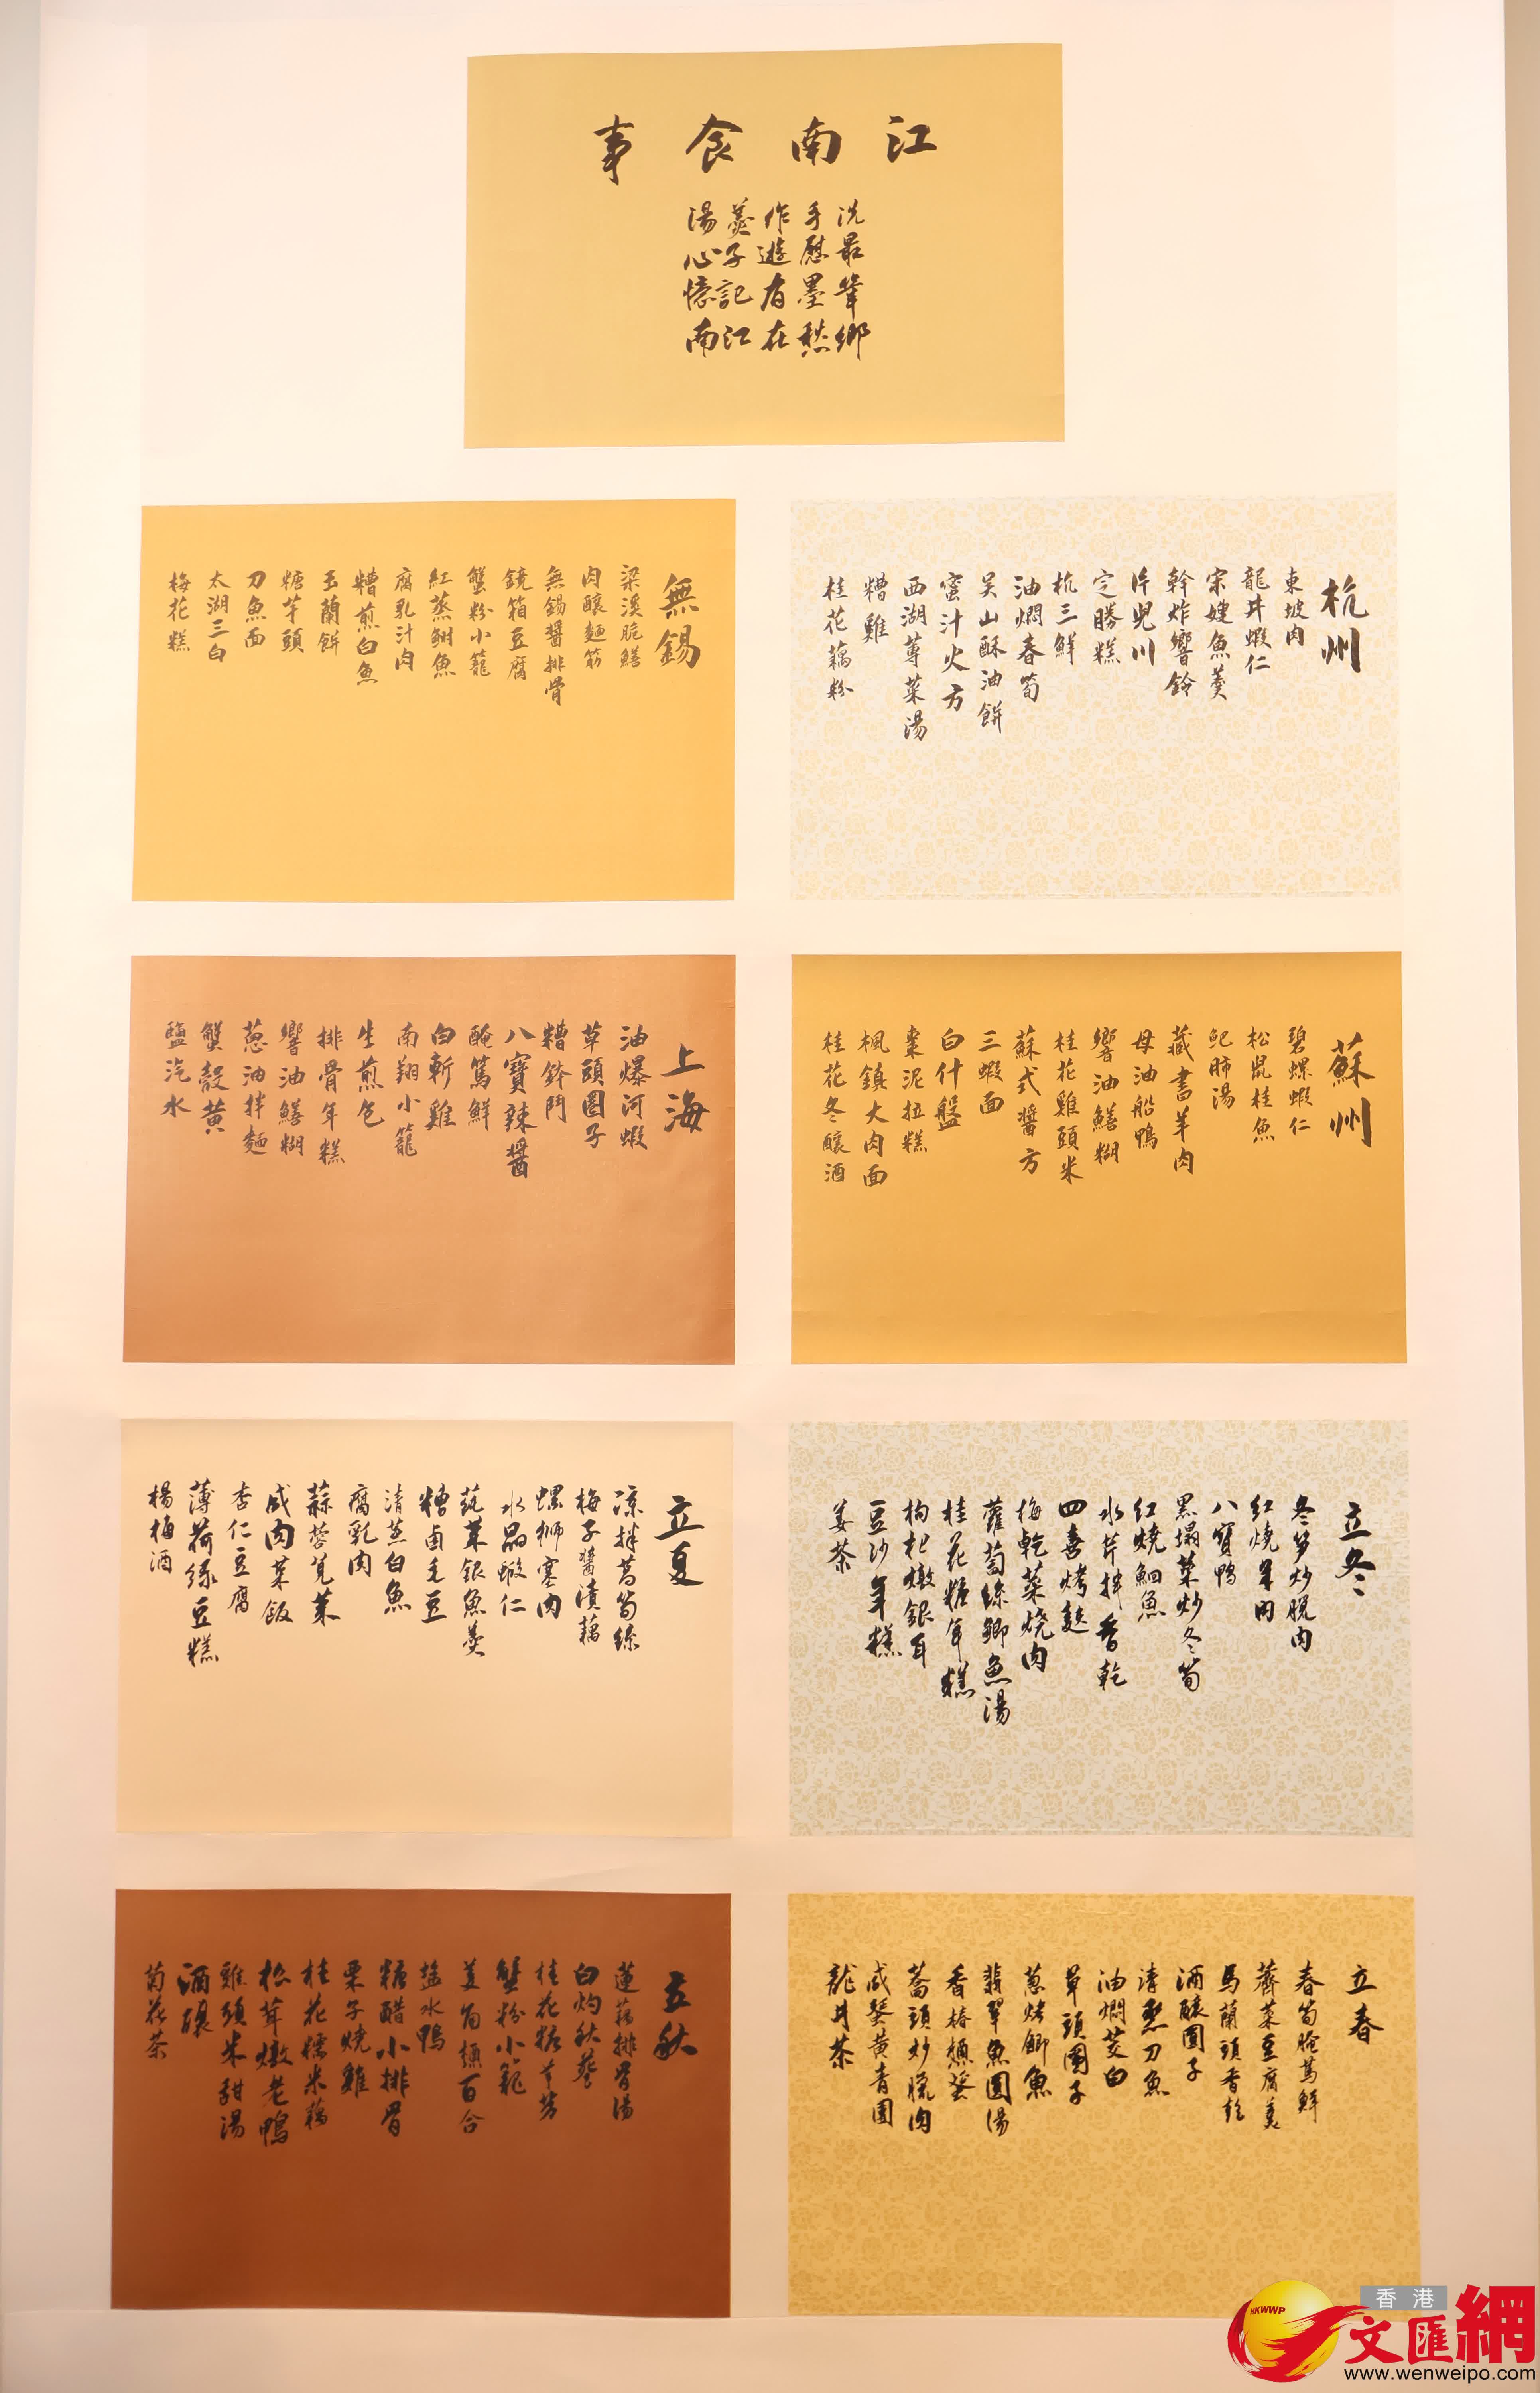 江南食事
洗手作羹湯
最慰遊子心
筆墨有記憶
鄉愁在江南
杭州
東坡肉
龍井蝦仁
宋嫂魚羹
幹炸響鈴
片兒川
定勝糕
杭三鮮
油燜春筍
吴山酥油餅
蜜汁火方
西湖蓴菜湯
糟雞
桂花藕粉
無錫
梁溪脆鱔
肉釀麵筋
無錫醬排骨
鏡箱豆腐
蟹粉小籠
紅蒸鮰魚
腐乳汁肉
糟煎白魚
玉蘭餅
糖芋頭
刀魚面
太湖三白
梅花糕
蘇州
碧螺蝦仁
松鼠桂魚
鲃肺湯
藏書羊肉
母油船鴨
響油鱔糊
桂花雞頭米
蘇式醬方
三蝦面
白什盤
棗泥拉糕
楓鎮大肉面
桂花冬釀酒
上海
油爆河蝦
草頭圈子
糟鉢鬥
八寶辣醬
醃篤鮮
白斬雞
南翔小籠
生煎包
排骨年糕
響油鱔糊
蔥油拌麵
蟹殼黄
鹽汽水
立冬
冬笋炒脫肉
紅燒羊肉
八寶鴨
黑塌菜炒冬筍
紅燒鮰魚
水芹拌香乾
四喜烤麩
梅乾菜燒肉
蘿蔔絲鲫魚湯
桂花糖年糕
枸杞燉銀耳
豆沙年糕
姜茶
立夏
涼拌萵筍絲
梅子醬漬藕
螺螄塞肉
水晶蝦仁
莼菜銀魚羹
糟鹵毛豆
清蒸白魚
腐乳肉
蒜蓉莧菜
咸肉菜飯
杏仁豆腐
薄荷绿豆糕
楊梅酒
立春
春筍腌篤鮮
薺菜豆腐羹
馬蘭頭香乾
酒釀圓子
清蒸刀魚
油燜茭白
草頭圈子
蔥烤鲫魚
翡翠魚圓湯
香椿燻蛋
蕎頭炒臘肉
咸蛋黄青團
龍井茶
立秋
蓮藕排骨湯
白灼秋葵
桂花糖芋艿
蟹粉小籠
百合
鹽水鴨
糖醋小排骨
栗子燒雞
桂花糯米藕
松茸燉老鴨
雞頭米甜湯
酒釀
菊花茶
香港
文匯網
HKWWP
www.wenweipo.com